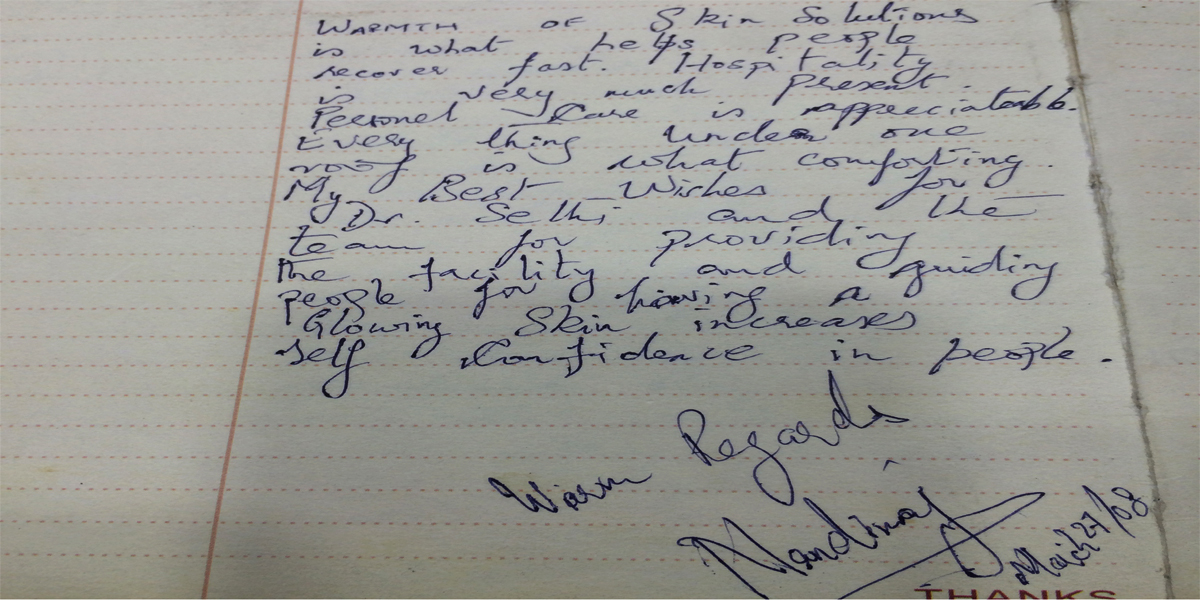 WARMTH OF Skin Solutions
is what helps people
recover fast. Hospitality
is very much present.
Personel Care is appreciatable.
Every thing under one
roof is what comforting.
My Best Wishes for
Dr. Sethi and the
team for providing
the facility and guiding
people for having a
Glowing Skin increases
self Confidence in people.
Warm Regards
March 27/08
THANKS